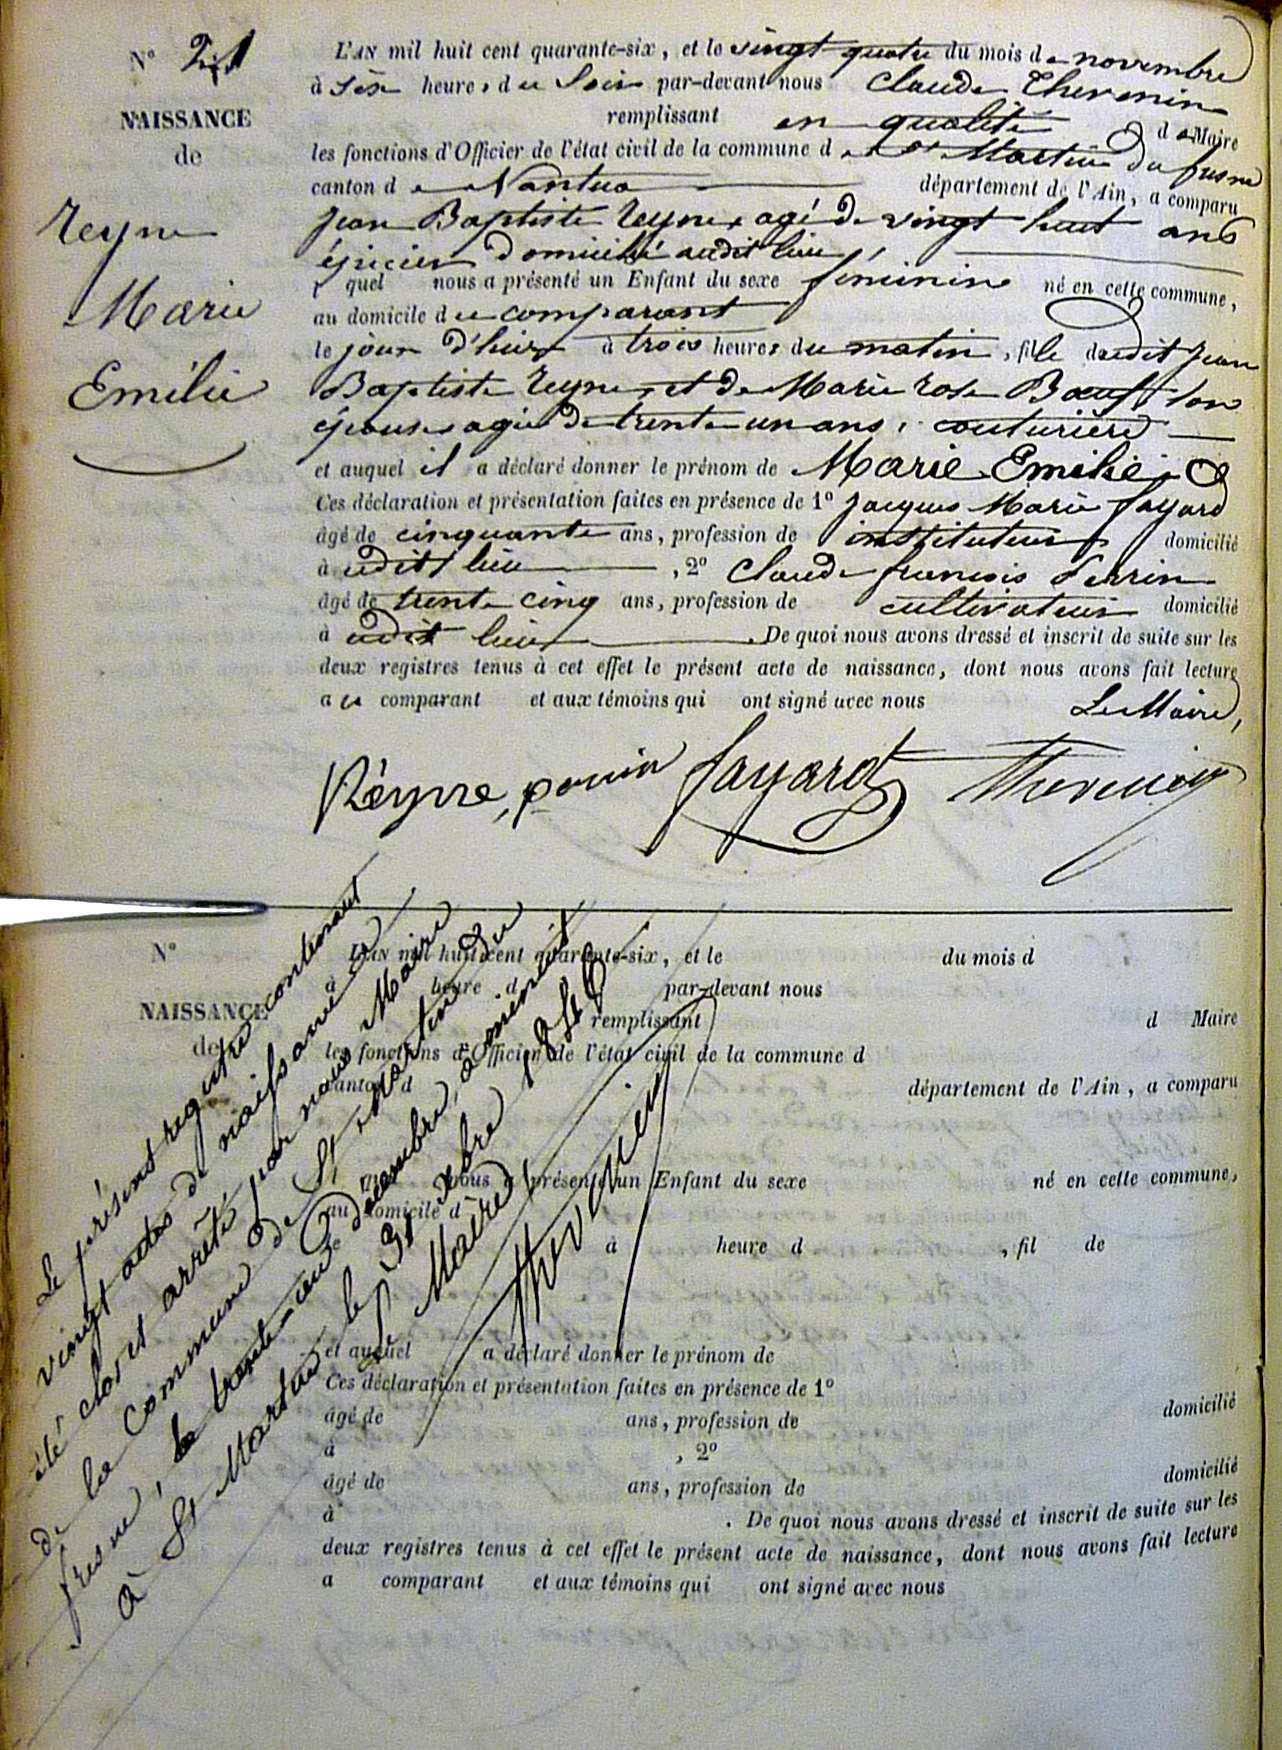 N° 21
NAISSANCE
de
Reyne
Marie
Emélie
L'AN mil huit cent quarante-six, et le vingt quatre du mois de novembre
à six heures du Soir par-devant nous Claude Thevenin
remplissant en qualité de Maire
les fonctions d'Officier de l'état civil de la commune de St Martin du fresne
canton de Nantua département de l'Ain, a comparu
jean Baptiste Reyne, agé de vingt huit ans
épicier domicilié audit lieu,
quel nous a présenté un Enfant du sexe féminin né en cette commune,
au domicile du comparant
le jour d'hier à trois heures du matin, fille dudit jean
Baptiste Reyne, et de Marie rose Bœuf son
épouse agée de trente un ans, couturière
et auquel il a déclaré donner le prénom de Marie Emélie
Ces déclaration et présentation faites en présence de 1° jacques Marie fayard
âgé de cinquante ans, profession de instituteur domicilié
à udit lieu, 2° Claude françois Perrin
âgé de trente cinq ans, profession de cultivateur domicilié
à udit lieu. De quoi nous avons dressé et inscrit de suite sur les
deux registres tenus à cet effet le présent acte de naissance, dont nous avons fait lecture
au comparant et aux témoins qui ont signé avec nous Le Maire,
Réyne, perrin fayard Thevenin
N°
NAISSANCE
de
L'AN mil huit cent quarante-six, et le du mois d
à heure d par-devant nous
remplissant d Maire
les fonctions d'Officier de l'état civil de la commune d
canton d département de l'Ain, a comparu
quel nous a présenté un Enfant du sexe né en cette commune,
au domicile d
le à heure d , fil de
et auquel a déclaré donner le prénom de
Ces déclaration et présentation faites en présence de 1°
âgé de ans, profession de domicilié
à , 2°
âgé de ans, profession de domicilié
à . De quoi nous avons dressé et inscrit de suite sur les
deux registres tenus à cet effet le présent acte de naissance, dont nous avons fait lecture
a comparant et aux témoins qui ont signé avec nous
Le présent registre contenant
vingt actes de naissance a
été clos et arrêté par nous Maire
de la Commune de St Martin du
fresne, le trente-un décembre, à minuit
à St Martin le 31 xbre 1846
Le Maire
Thevenin